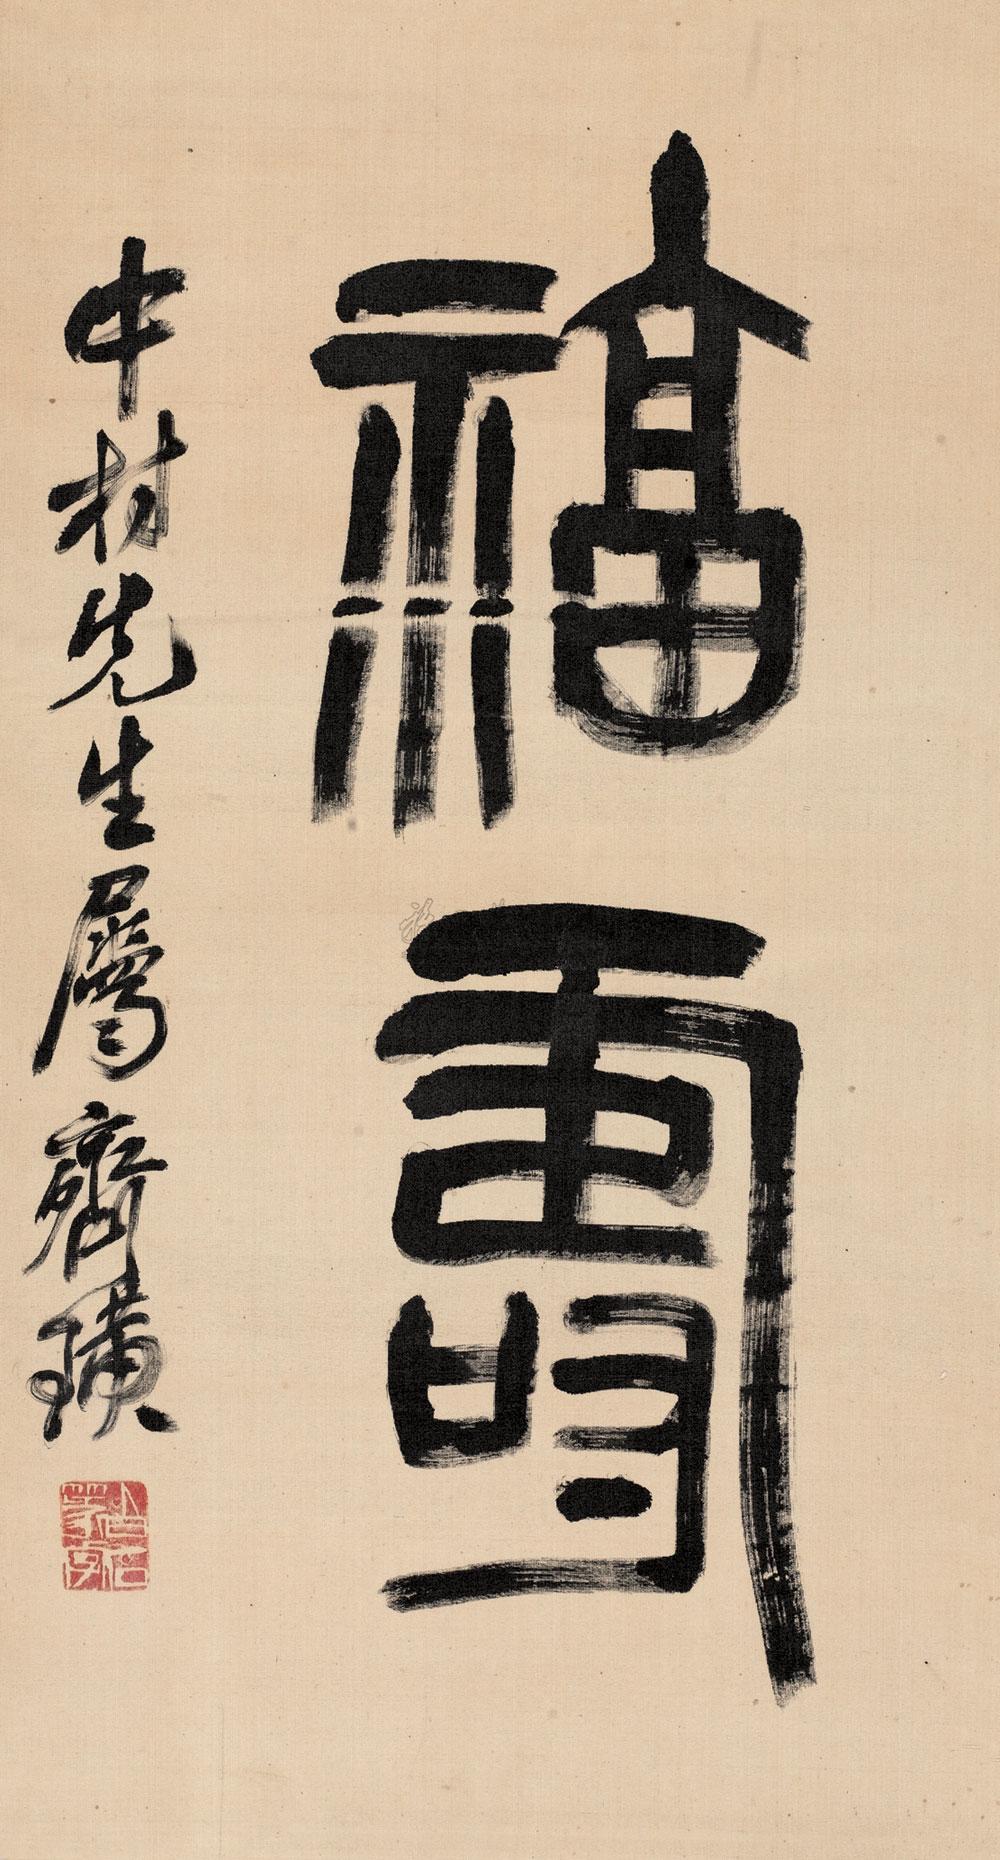 福壽
中村先生屬齊璜